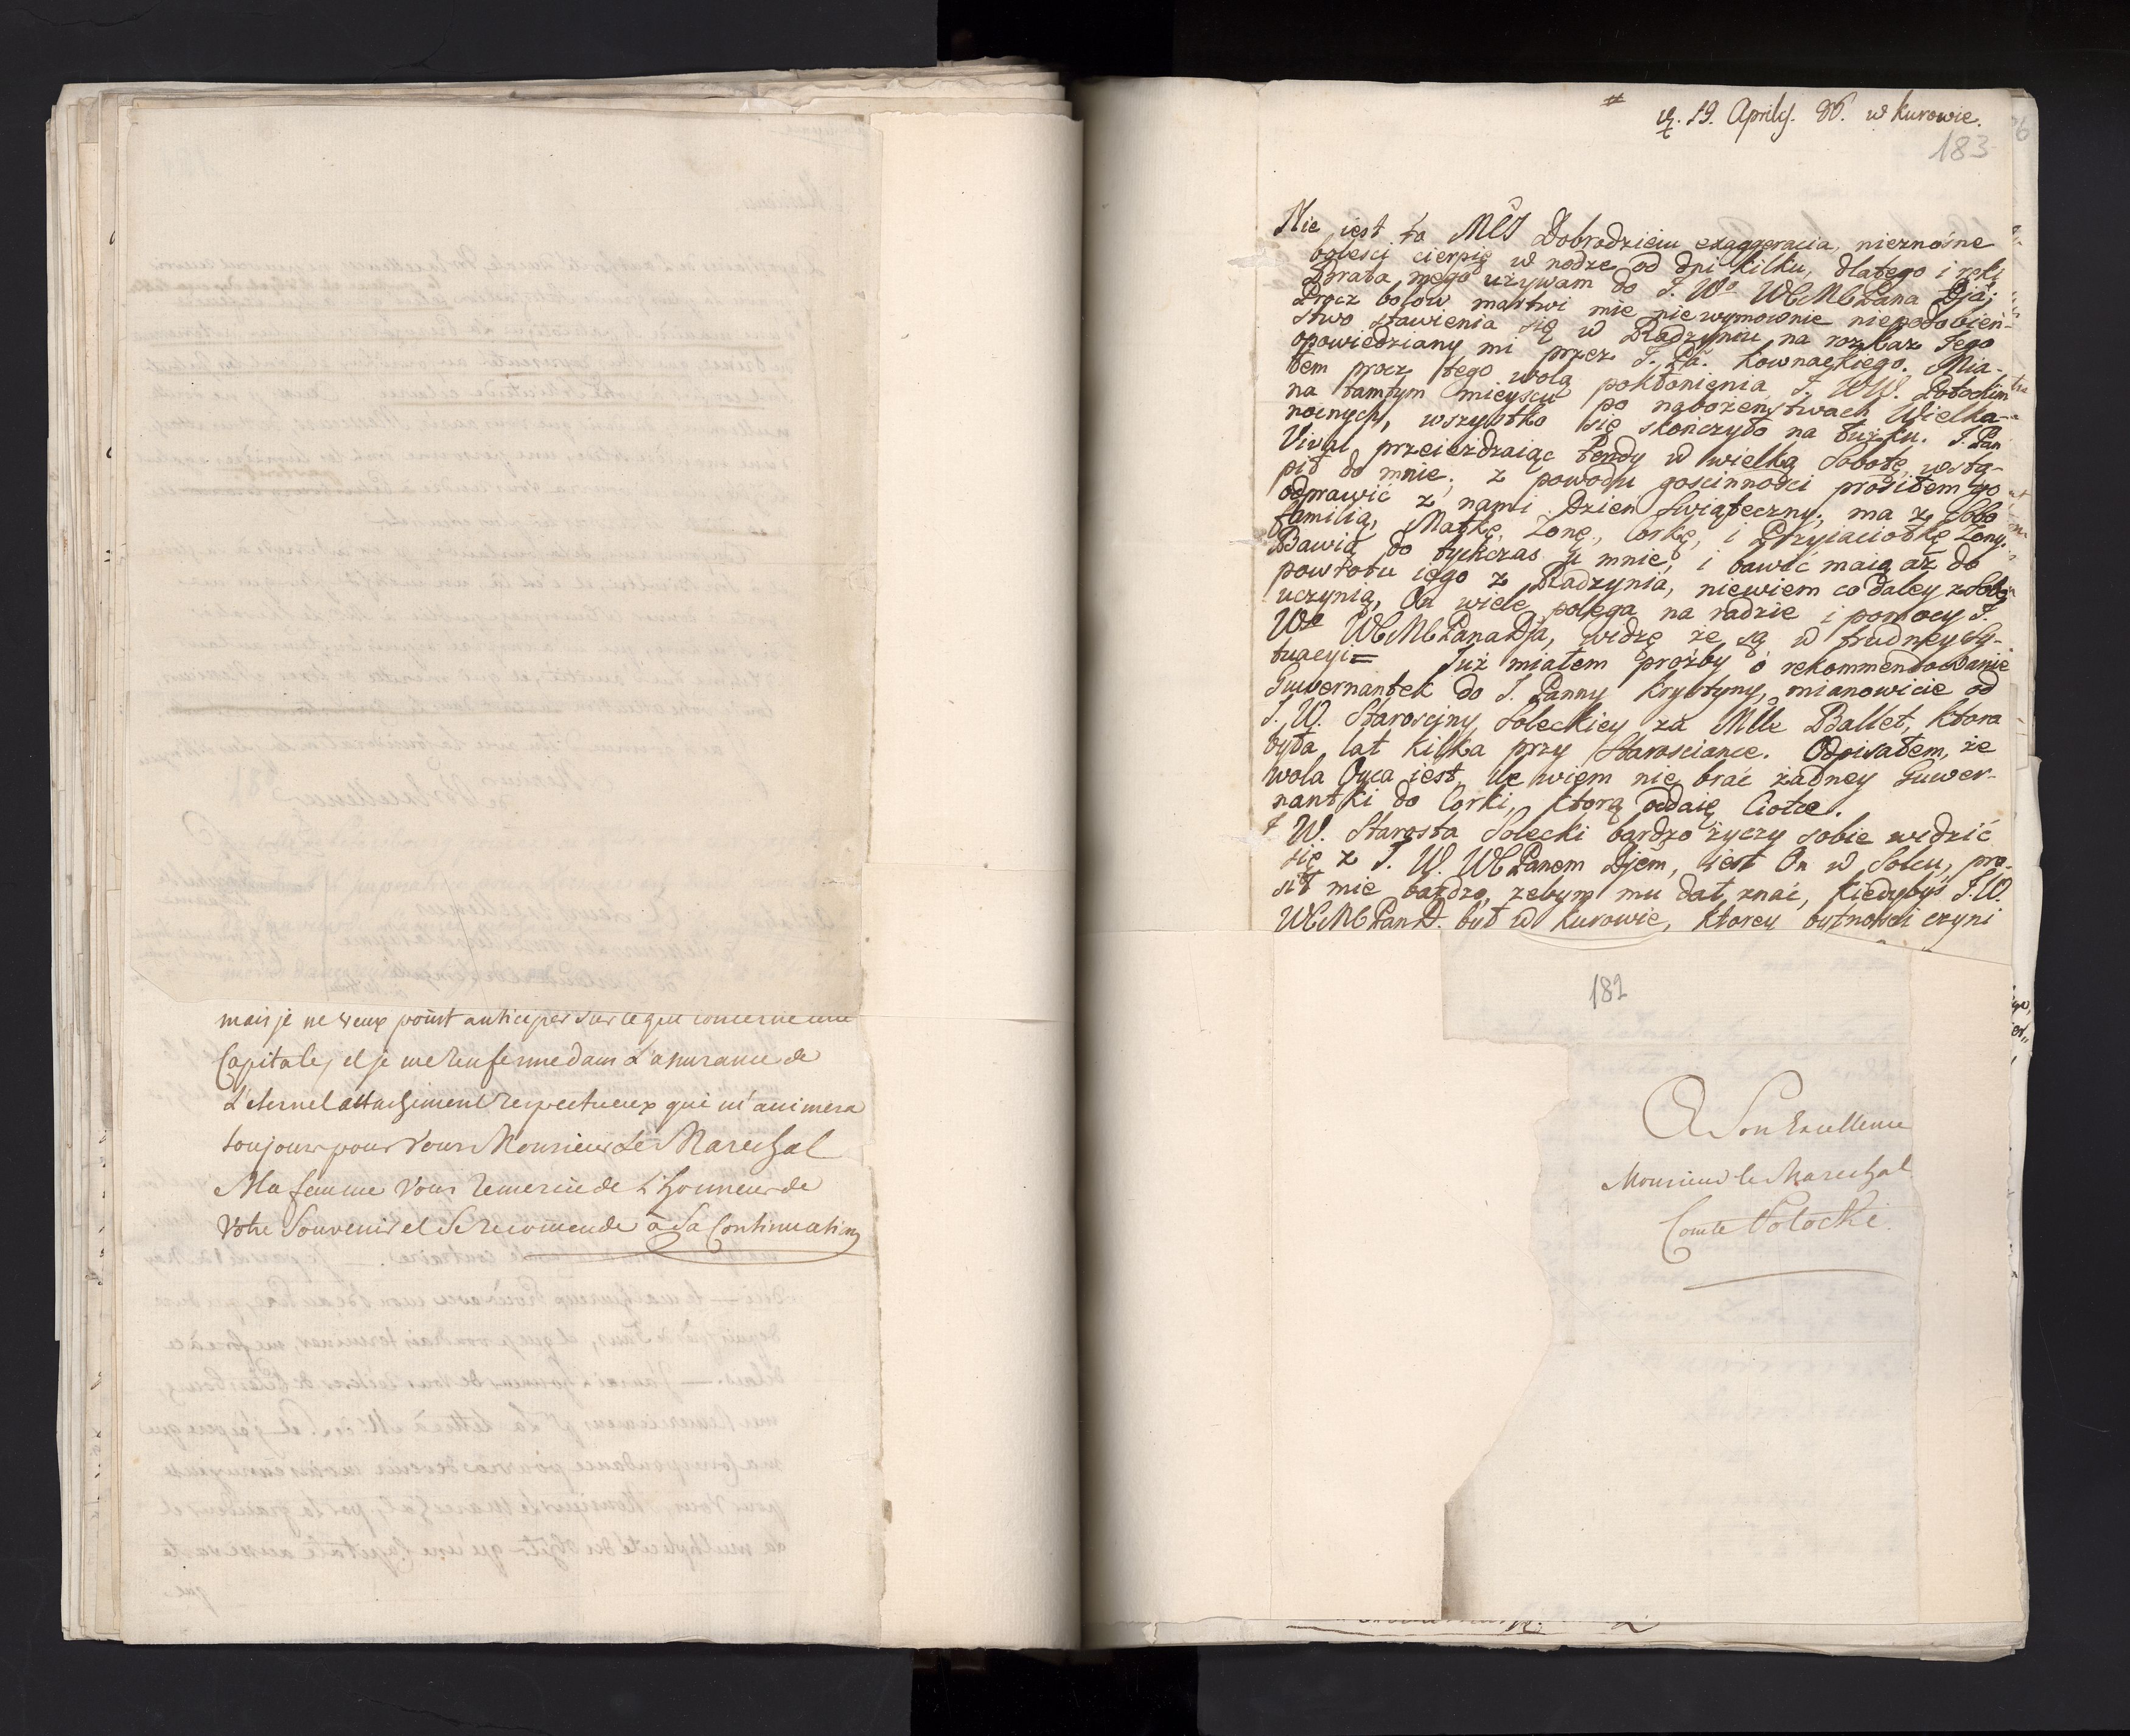 mais je ne veux point anticiper sur ce qui concerne une
Capitale, et je me renferme dans L'assurance de
L'eternel attachement respectueux qui m'animera
toujours pour Vous Monsieur Le Marechal
Ma femme Vous remercie de L'honneur de
Votre Souvenir et se recomende à sa Continuation
19. Aprilis. 86. w Kurowie.
183
Nie iest to MCJ Dobrodzieiu exaggeracia, nieznośne
boleści cierpię w nodze od dni kilku, dlatego i ręki
Brata mego używam do J. Wo WCMCPana Dja;
Procz bolow martwi mie niewymownie niepodobień-
stwo stawienia się w Radzyniu na rozkaz Jego
opowiedziany mi przez J. Pa. Kownackiego. Mia-
łem procz tego wolą pokłonienia J. WW. Potockim
na tamtym mieyscu po nabożeństwach Wielka-
nocnych, wszystko się skończyło na łużku. J. Pan
Vival przeieżdzaiąc tędy w wielką Sobotę, wstą-
pił do mnie; z powodu goscinności prosiłem go
odprawić z nami Dzien Swiąteczny; ma z sobo
familią, Matkę, Zonę, Corkę, i Przyiaciołkę Zony.
Bawią do tychczas u mnie, i bawić maią aż do
powrotu iego z Radzynia, niewiem co daley z sobą
uczynią, On wiele polega na radzie i pomocy J.
Wo WCMCPana Dja, widzę że są w trudney Sy-
tuacyi= Już miałem proźby o rekommendowanie
Guwernantek do J. Panny Krystyny, mianowicie od
J. W. Starosciny Soleckiey za Mlle Ballet, ktora
była lat kilka przy Starosciance. Odpisałem, że
wola Oyca iest, ile wiem nie brać żadney Guwer-
nantki do Corki, ktorą oddaię Ciotce.
J W. Starosta Solecki bardzo życzy sobie widzić
się z J. W. WCPanem Djem, iest On w Solcu, pro-
sił mie bardzo, żebym mu dał znać, kiedybyś J. W.
WCMCPan D. był w Kurowie, ktorey bytności czyni
182
A Son Excellence
Monsieur le Marechal
Comte Potocki.